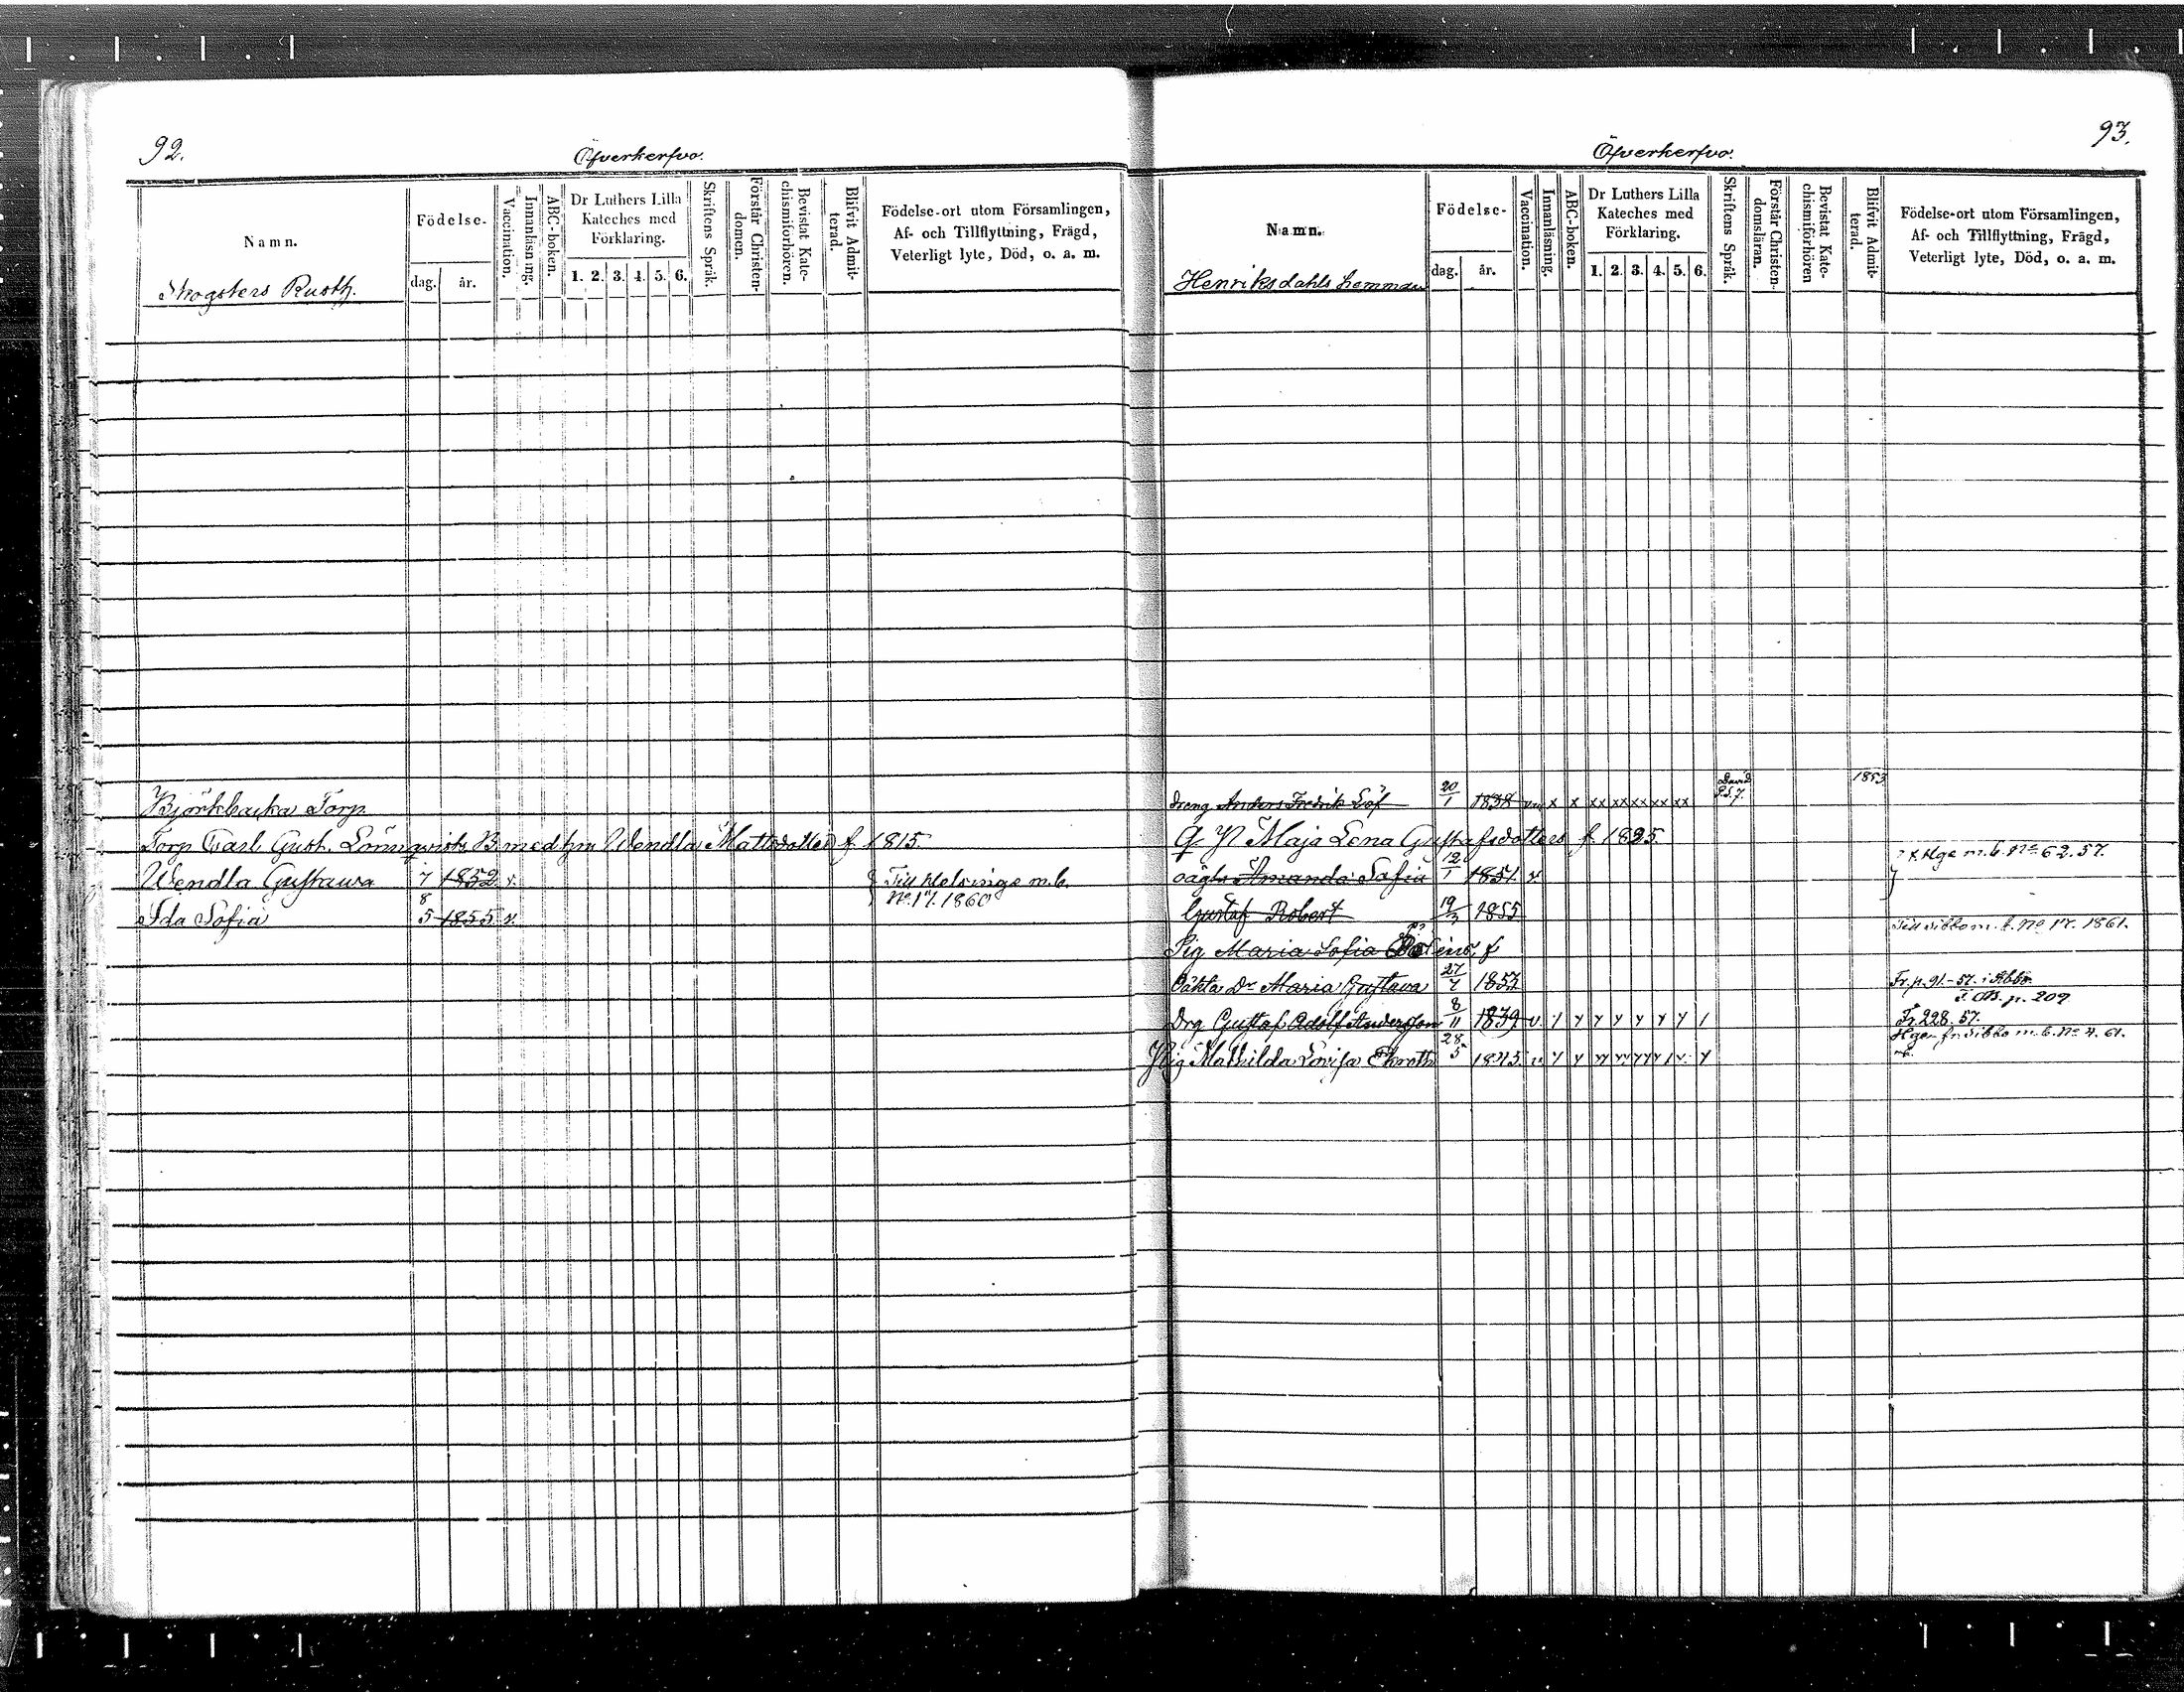 92.
Öfverkerfvo.
Namn.
Födelse-
dag.
år.
Vaccination.
Innanläsning.
ABC-boken.
Dr Luthers Lilla
Kateches med
Förklaring.
1. 2. 3. 4. 5. 6.
Skriftens Språk.
Förstår Christen-
domen.
Bevistat Kate-
chismiförhören.
Blifvit Admit-
terad.
Födelse-ort utom Församlingen,
Af- och Tillflyttning, Frägd,
Veterligt lyte, Död, o. a. m.
Skogsters Rusth.
Björkbacka Torp
Torp Carl Gust. Lönnqvists B med hu Wendla Mattsdotter f. 1815.
Wendla Gustawa 7 1852 v. Till Helsinge m.b.
8 No 17. 1860
Ida Sofia 5 1855 v.
93.
Öfverkerfvo.
Namn.
Födelse-
dag.
år.
Vaccination.
Innanläsning.
ABC-boken.
Dr Luthers Lilla
Kateches med
Förklaring.
1. 2. 3. 4. 5. 6.
Skriftens Språk.
Förstår Christen-
domsläran.
Bevistat Kate-
chismiförhören
Blifvit Admit-
terad.
Födelse-ort utom Församlingen,
Af- och Tillflyttning, Frägd,
Veterligt lyte, Död, o. a. m.
Henriksdahls hemman
dreng Anders Fredrik Löf 20/1 1838 x x xx xx xx xx xx David Ps. 7. 1853
Q. P Maja Lena Gustafsdotters f. 1825.
oägta Amanda Sofia 12/1 1851 v Hge m.b. No 62. 57.
Gustaf Robert 19/3 1855
Till Sibbo m.b. No 17. 1861.
Pig Maria Sofia f
Oäkta Dr Maria Gustava 27/7 1857 Fr. p. 91.-57. i Sibbo.
p. 209
Drg Gustaf Adolf Andersson 8/11 1839 v. y y y y y y y / Fr. 228. 57.
fr. Sibbo m.b. No 4. 61.
Pig Mathilda Lovisa Ekroth 28/5 1843. v. y y